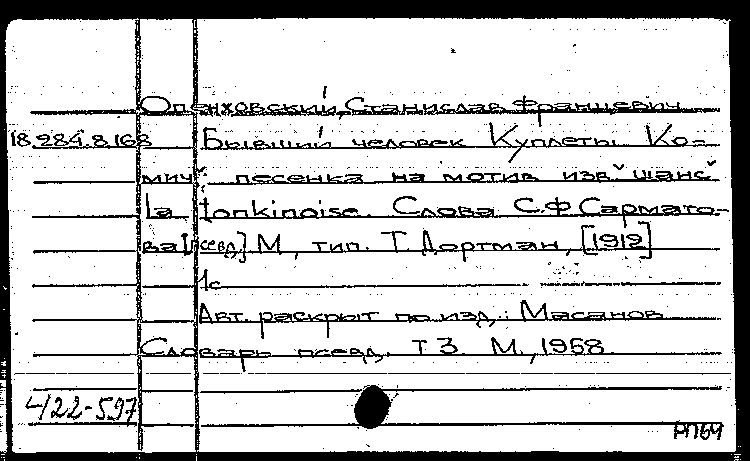 Опенховский, Станислав Францевич
18.284.8.168 Бывший человек Куплеты Ко-
мич. песенка на мотив изв. шанс.
La tonkinoise. Слова С.Ф.Сармато-
ва [псевд.] М., тип. Т. Дортман, [1912]
1с
Авт. раскрыт по изд.: Масанов
Словарь псевд. Т 3. М., 1958
422-597
РП64